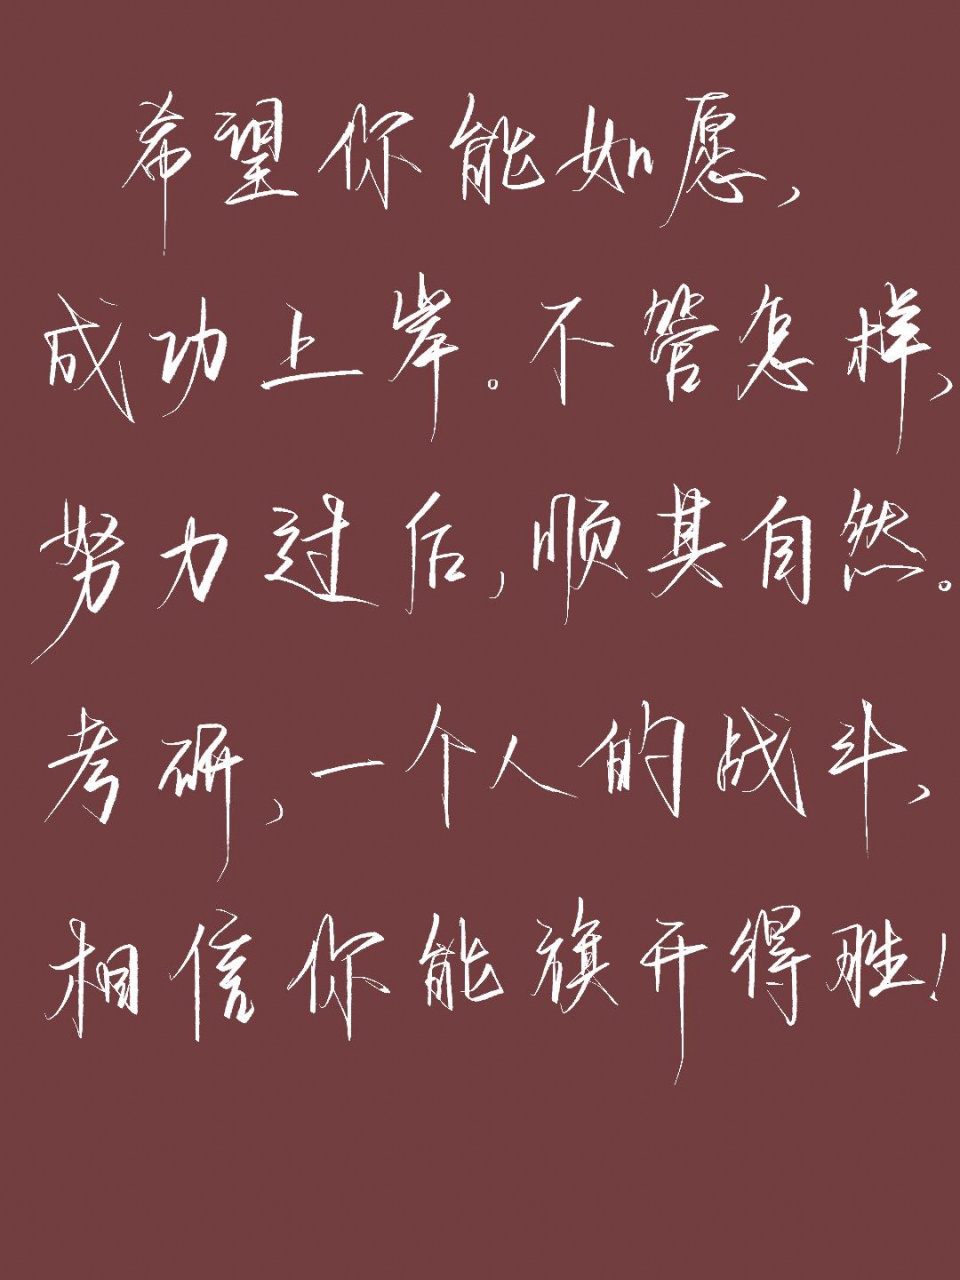 希望你能如愿,
成功上岸。不管怎样,
努力过后,顺其自然。
考研,一个人的战斗,
相信你能旗开得胜!